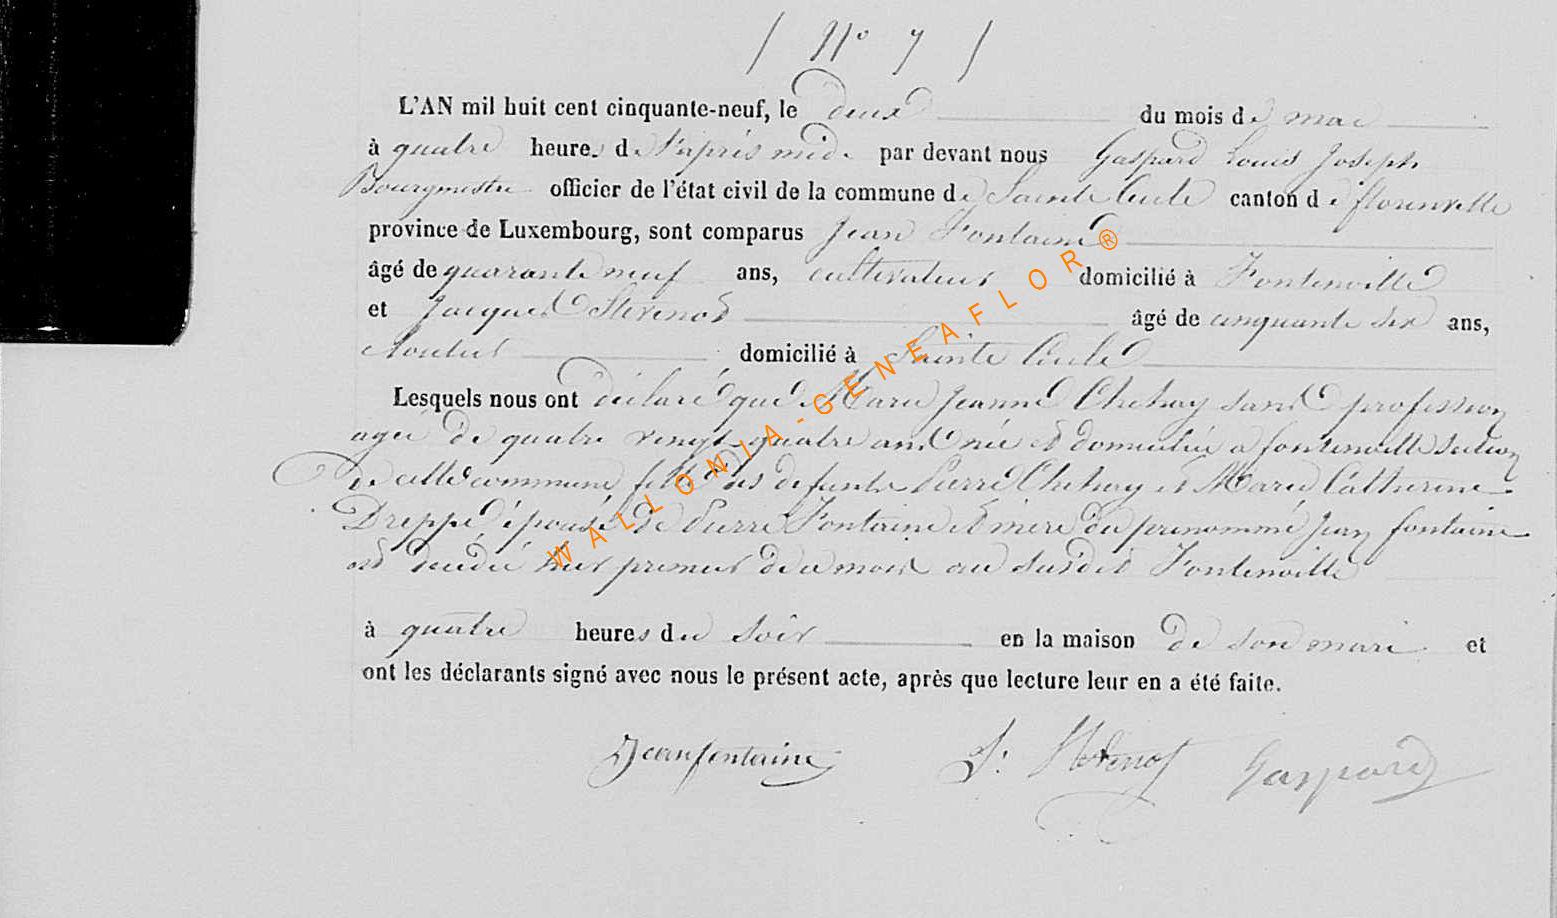 ( N° 7 )
L'AN mil huit cent cinquante-neuf, le deux du mois de mai
à quatre heures de l'après midi par devant nous Gaspard Louis Joseph
Bourgmestre officier de l'état civil de la commune de Sainte Cécile canton de florenville
province de Luxembourg, sont comparus Jean Fontaine
âgé de quarante neuf ans, cultivateur domicilié à Fontenoille
et Jacques Stevenot âgé de cinquante six ans,
cloutier domicilié à Sainte Cécile
Lesquels nous ont déclaré que Marie Jeanne Chehay sans profession
agée de quatre vingt quatre ans née et domiciliée a fontenoille section
de cette commune fille des defunts Pierre Chehay et Marie Catherine
Dreppe épouse de Pierre Fontaine et mère du prénommé Jean fontaine
est décédée hier premier de ce mois au susdit Fontenoille
à quatre heures du soir en la maison de son mari et
ont les déclarants signé avec nous le présent acte, après que lecture leur en a été faite.
Jean fontaine J. Stevenot Gaspard
WALLONIA-GENEAFLOR®